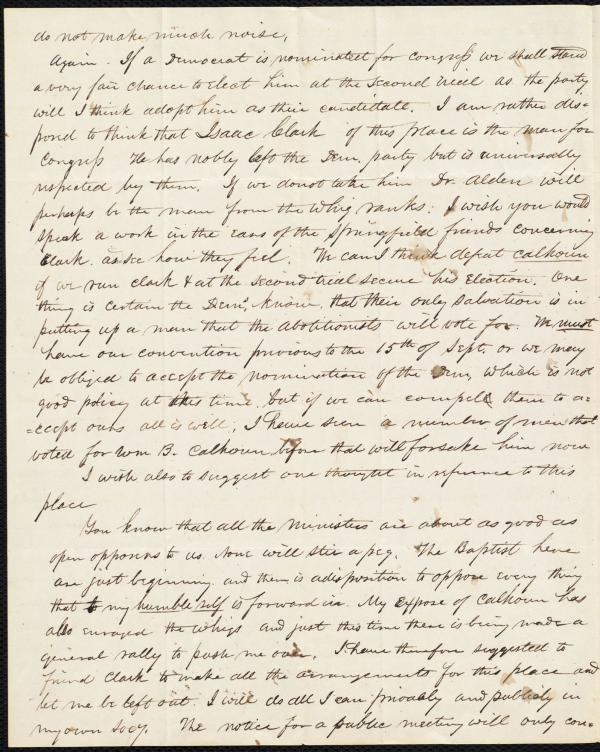 do not make much noise,
Again. If a Democrat is nominated for Congress we shall stand
a very fair chance to elect him at the second trial as the party
will I think adopt him as their candidate. I am rather dis=
posed to think that Isaac Clark of this place is the man for
Congress He has nobly left the Dem. party but is universally
respected by them. If we do not take him Dr. Alden will
perhaps be the man from the Whig ranks. I wish you would
speak a work in the ears of the Springfield friends concerning
Clark. as see how they feel. We can I think defeat Calhoun
if we run Clark & at the second trial secure his election. One
thing is certain the Dem's, know that their only salvation is in
putting up a man that the abolitionists will vote for. We must
have our convention previous to the 15th of Sept. or we may
be obliged to accept the nomination of the Dem, which is not
good policy at this time but if we can compel them to a=
=ccept ours all is well, I have seen a number of men that
voted for Wm B. Calhoun before that will forsake him now
I wish also to suggest one thought in reference to this
place
You know that all the ministers are about as good as
open opposers to us. None will stir a peg. The Baptist here
are just beginning and there is a disposition to oppose every thing
that my humble self is forward in. My expose of Calhoun has
also enraged the Whigs and just this time there is being made a
general rally to push me over. I have therefore suggested to
friend Clark to make all the arrangements for this place and
let me be left out. I will do all I can privately and publicly in
my own Socy. The notice for a public meeting will only con=